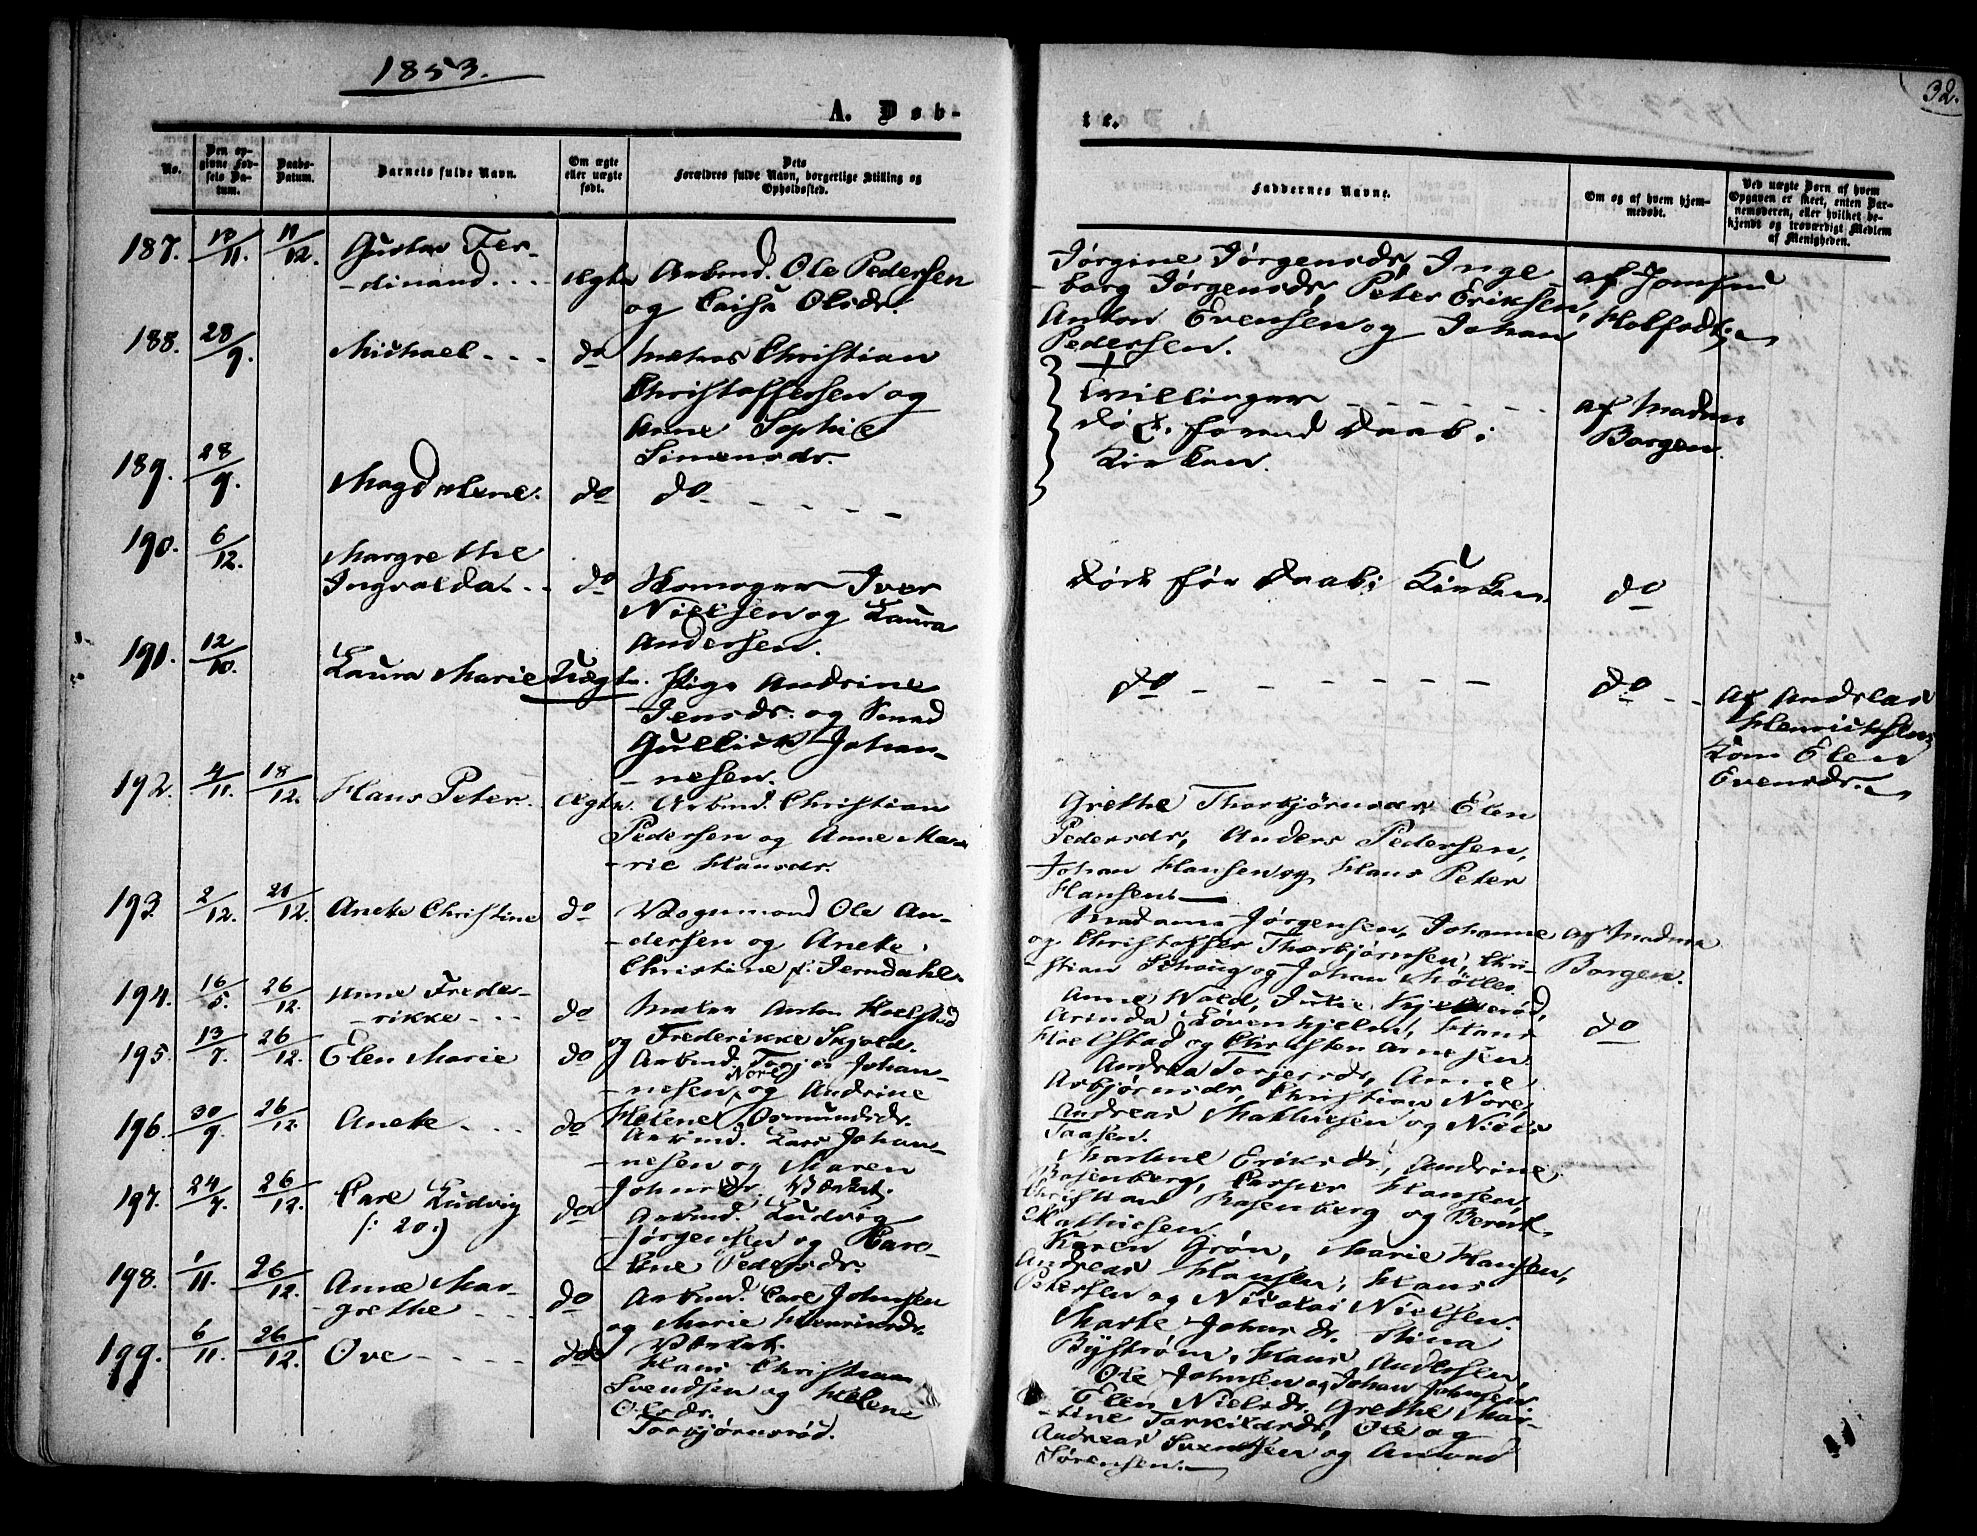 1853.
32.
A. Døb-
te.
No.
Den op-
givne Fød-
sels Da-
tum.
Daabs-
Datum.
Barnets fulde Navn.
Om ægte
eller uægte
født.
Dets
Forældres fulde Navn, borgerlige Stilling og
Opholdssted.
Faddernes Navne.
Om og af hvem hjem-
medøbt.
Ved uægte Børn af hvem
Opgaven er skeet, enten Bar-
nemoderen, eller hvilket be-
kjendt og troværdigt Medlem
af Menigheden.
187. 10/11. 11/12. Gustav Fer-
-dinand... Ægte Arbmd. Ole Pedersen
og Caisa Olsdr.
Jørgine Jørgensdr, Inge-
borg Jørgensdr, Peter Eriksen,
Anton Evensen og Johan
Pedersen.
af Jomfru
Holfodt
188. 28/9. Michael - - - do Matros Christian
Christoffersen og
Anne Sophie
Simensdr.
Tvillinger
død. forend Daab i
Kirken.
af Madm
Borgen.
189. 28/9. Magdalene. do do
190. 6/12. Margrethe
Ingvalda - - do Skomager Iver
Nielsen og Laura
Andersen.
Død før Daab i Kirken. do
191. 12/10. Laura Marie Uægt. Pige Andrine
Jensdr. og Smed
Gullick Johan-
-nesen.
do - - - do - - Af Andreas
Henrichsen
som Elen
Evensdr.
192. 4/11. 18/12. Hans Peter. Ægte Arbmd. Christian
Pedersen og Anne Ma-
-rie Hansdr.
Grethe Thorbjørnsdr Elen
Pedersdr, Anders Pedersen,
Johan Hansen og Hans Peter
Hansen
193. 2/12. 21/12. Aneke Christine do Vognmand Ole An-
-dersen og Aneke
Christine f. Jerndahl.
Madame Jørgensen, Johanne
og Christoffer Thorbjørnsen, Chri-
stian Schoug og Johan Møller
Af Madm
Borgen.
194. 16/5. 26/12. Anne Frede-
-rikke - - - do Maler Anton Hoelstad
og Frederikke Skjold.
Anne Wold, Julie Kjelleröd,
Arinda Løvenhjelm, Hans
Hoelstad og Christen Arnesen
do
195. 13/7. 26/12. Elen Marie do Arbmd. Torjer Johan-
-nesen Nore, og Andrine
Helene Osmundsdr.
Andrea Torjersdr, Anne
Asbjørnsdr, Christian Nore,
Andreas Mathiesen og Niels
Taasen.
196. 30/9. 26/12. Aneke - - - do Arbmd. Lars Johan-
-nesen og Maren
Johnsdr.
Marthe Eriksdr, Andrine
Rosenberg, Casper Hansen,
Christian Rosenberg og Bernt
Mathiesen
197. 24/7. 26/12. Carl Ludvig
/: 20:) do Arbmd. Ludvig
Jørgensen og Karo-
line Pedersdr.
Karen Grøn, Marie Hansen,
Andreas Hansen, Hans
Petersen og Nicolai Nielsen.
198. 1/11. 26/12. Anne Mar-
-grethe - - do Arbmd. Carl Johnsen
og Marie Henriksdr.
Marte Johnsdr. Stina
Bystrøm, Hans Andersen,
Ole Johnsen og Johan Johnsen
199. 6/11. 26/12. Ove - - - - do Hans Christian
Svendsen og Helene
Olsdr.
Torbjørnsrød.
Elen Nielsdr, Grethe Mar-
-tine Torkildsdr, Ole og
Andreas Svendsen og Anton
Sørensen.